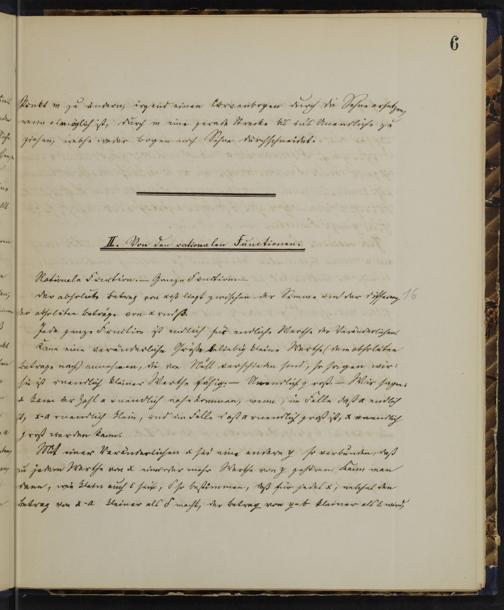 6
Punkt m zu ändern, irgend einen Curvenbogen durch die Sehne ersetzen,
wenn es möglich ist, durch m eine gerade Strecke bis ins Unendliche zu
ziehen, welche weder Bogen noch Sehne durchschneidet.
II. Von den rationalen Functionen.
Rationale Function. — Ganze Function.
Der absolute Betrag von liegt zwischen der Summe und der Differenz
der absoluten Beträge von
16
Jede ganze Function ist endlich für endliche Werthe der Veränderlichen.
Kann eine veränderliche Größe beliebig kleine Werthe, dem absoluten
Betrage nach annehmen, die von Null verschieden sind, so sagen wir:
sie ist unendlich kleiner Werthe fähig. — Unendlich groß. — Wir sagen,
x kann der Zahl a unendlich nahe kommen, wenn, im Falle daß a endlich
ist, x-a unendlich klein, und im Falle daß a unendlich groß ist, x unendlich
groß werden kann.
Mit einer Veränderlichen x sei eine andere y so verbunden, daß
zu jedem Werthe von x einer oder mehr Werthe von y gehören. Kann man
dann, wie klein auch ε sei, δ so bestimmen, daß für jedes x, welches den
Betrag von x-a kleiner als δ macht, der Betrag von y-b kleiner als ε wird,